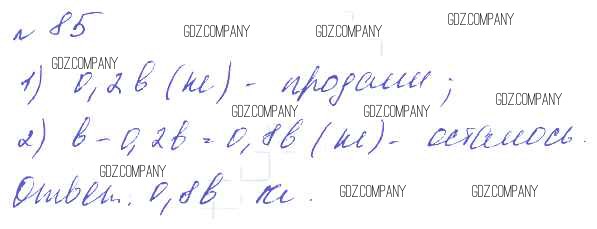 № 85
GDZ.COMPANY GDZ.COMPANY GDZ.COMPANY
GDZ.COMPANY
1) 0,2в (кг) - продали;
GDZ.COMPANY GDZ.COMPANY GDZ.COMPANY
2) в - 0,2в = 0,8в (кг) - осталось.
GDZ.COMPANY
Ответ. 0,8в кг.
GDZ.COMPANY GDZ.COMPANY